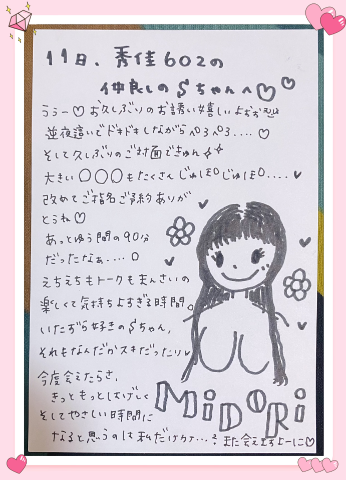 11日、秀佳602の
仲良しのSちゃんへ♡♡
うぅー♡お久しぶりのお誘い嬉しいよぉぉ
並夜這いでドキドキしながらペロペロ....♡
そして久しぶりのご対面できゅん
大きい〇〇〇もたくさんじゅぽじゅぽ....♥
改めてご指名ご予約ありが
とうね♡
あっとゆう間の90分
だったなぁ....
えちえちもトークもまんさいの
楽しくて気持ちよすぎる時間。
いたずら好きのSちゃん。
それもなんだかスキだったり♥
今度会えたらさ、
きっともっとしげしげく
そしてやさしい時間に
なると思うのは私だけカナ...? また会えますよーに♡
MiDORi